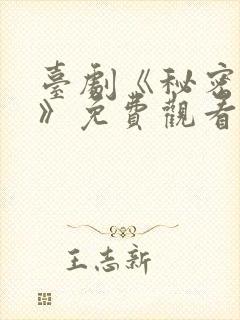 臺劇《秘密
》免費觀看
王志新